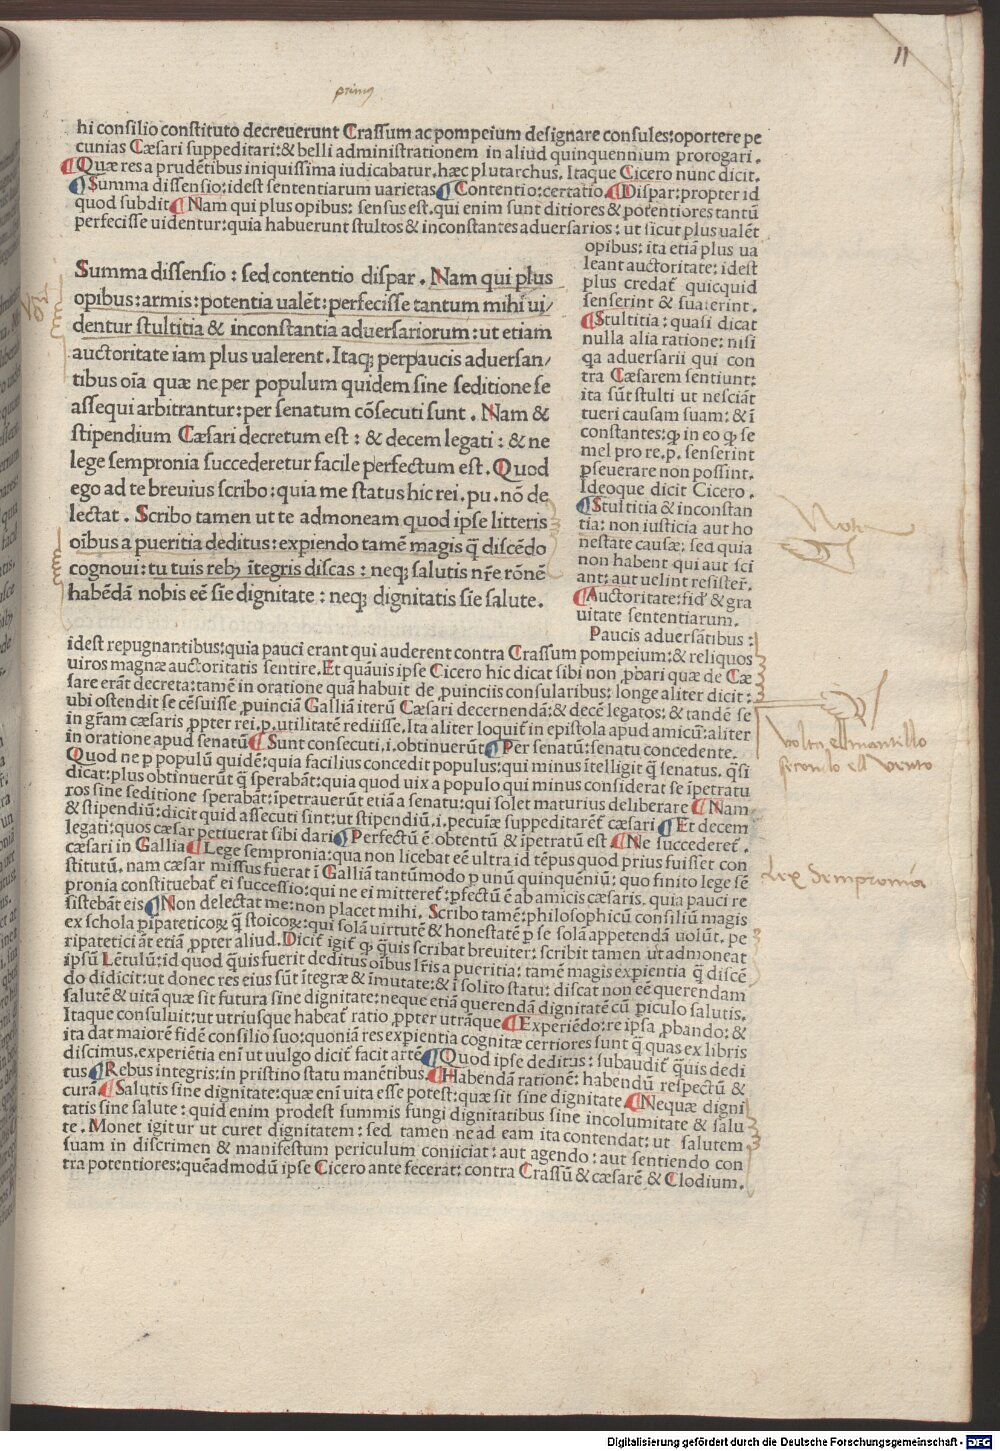 11
primus
hi consilio constituto decreuerunt Crassum ac pompeium designare consules:oportere pe
cunias Cæsari suppeditari:& belli administrationem in aliud quinquennium prorogari.
¶Quæ res a prudētibus iniquissima iudicabatur.hæc plutarchus. Itaque Cicero nunc dicit.
¶Summa dissensio:idest sententiarum varietas¶Contentio:certatio.¶Dispar:propter id
quod subdit¶Nam qui plus opibus: sensus est.qui enim sunt ditiores & potentiores tantū
perfecisse uidentur:quia habuerunt stultos & inconstantes aduersarios: ut sicut plus ualēt
opibus: ita etiā plus ua
leant auctoritate: idest
plus credat̄ quicquid
senserint & suaserint.
¶Stultitia: quasi dicat
nulla alia ratione: nisi
qa aduersarii qui con
tra Cæsarem sentiunt:
ita sūt stulti ut nesciāt
tueri causam suam: & ī
constantes:ꝙ in eo ꝙ se
mel pro re.p. senserint
ꝑseuerare non possint.
Ideoque dicit Cicero.
¶Stultitia & inconstan
tia: non iusticia aut ho
nestate causæ: sed quia
non habent qui aut sci
ant: aut uelint resister̄.
¶Auctoritate:fid' & gra
uitate sententiarum.
Paucis aduersātibus:
Summa dissensio: sed contentio dispar. Nam qui plus
opibus:armis:potentia ualēt:perfecisse tantum mihi ui/
dentur stultitia & inconstantia aduersariorum:ut etiam
auctoritate iam plus ualerent.Itaqꝫ perpaucis aduersan/
tibus oīa quæ ne per populum quidem sine seditione se
assequi arbitrantur:per senatum cōsecuti sunt. Nam &
stipendium Cæsari decretum est: & decem legati: & ne
lege sempronia succederetur facile perfectum est.Quod
ego ad te breuius scribo:quia me status hic rei.pu.nō de
lectat. Scribo tamen ut te admoneam quod ipse litteris
oībus a pueritia deditus:expiendo tamē magis q̄ discēdo
cognoui:tu tuis rebꝫ ītegris discas: neqꝫ salutis nr̄e rōnē
habēdā nobis eē sīe dignitate: neqꝫ dignitatis sīe salute.
idest repugnantibus:quia pauci erant qui auderent contra Crassum pompeium:& reliquos
uiros magnæ auctoritatis sentire.Et quāuis ipse Cicero hic dicat sibi non ꝓbari quæ de Cæ
sare erāt decreta:tamē in oratione quā habuit de ꝓuinciis consularibus: longe aliter dicit:
ubi ostendit se cēsuisse ꝓuinciā Galliā iterū Cæsari decernendā:& decē legatos:& tandē se
in gr̄am cæsaris ꝓpter rei.p.utilitatē rediisse.Ita aliter loquit̄ in epistola apud amicū:aliter
in oratione apud senatū¶Sunt consecuti.i.obtinuerūt¶Per senatū:senatu concedente.
Quod ne p populū quidē:quia facilius concedit populus:qui minus ītelligit q̄ senatus. q̄si
dicat:plus obtinuerūt q̄ sperabāt:quia quod uix a populo qui minus considerat se īpetratu
ros sine seditione sperabāt:īpetrauerūt etiā a senatu:qui solet maturius deliberare¶Nam
& stipendiū:dicit quid assecuti sint:ut stipendiū.i.pecuīæ suppeditarēt̄ cæsari¶Et decem
legati:quos cæsar petiuerat sibi dari¶Perfectū ē.obtentū & īpetratū est¶Ne succederet̄.
cæsari in Gallia¶Lege sempronia:qua non licebat eē ultra id tēpus quod prius fuisset con
stitutū. nam cæsar missus fuerat ī Galliā tantūmodo p unū quinquēniū: quo finito lege sē
pronia constituebat̄ ei successio:qui ne ei mitteret̄:ꝑfectū ē ab amicis cæsaris. quia pauci re
sistebāt eis¶Non delectat me:non placet mihi. Scribo tamē:philosophicū consiliū magis
ex schola pīpateticoꝝ q̄ stoicoꝝ:qui solā uirtutē & honestatē p se solā appetendā uolūt. pe
ripatetici āt etiā ꝓpter aliud.Dicit igit̄ ꝙ q̄uis scribat breuiter: scribit tamen ut admoneat
ipsū Lētulū:id quod q̄uis fuerit deditus oībus lr̄is a pueritia: tamē magis expientia q̄ discē
do didicit:ut donec res eius sūt ītegræ & īmutate:& ī solito statu: discat non eē querendam
salutē & uitā quæ sit futura sine dignitate:neque etiā querendā dignitatē cū ꝑiculo salutis.
Itaque consuluit:ut utriusque habeat̄ ratio ꝓpter utrāque¶Experiēdo:re ipsa ꝓbando: &
ita dat maiorē fidē consilio suo:quoniā res expientia cognitæ certiores sunt q̄ quas ex libris
discimus.experiētia enī ut uulgo dicit̄ facit artē¶Quod ipse deditus: subaudit̄ q̄uis dedi
tus¶Rebus integris:in pristino statu manētibus.¶Habendā rationē: habendū respectū &
curā.¶Salutis sine dignitate:quæ enī uita esse potest:quæ sit sine dignitate¶Nequæ digni
tatis sine salute: quid enim prodest summis fungi dignitatibus sine incolumitate & salu
te. Monet igitur ut curet dignitatem: sed tamen ne ad eam ita contendat: ut salutem
suam in discrimen & manifestum periculum coniiciat: aut agendo: aut sentiendo con
tra potentiores:quēadmodū ipse Cicero ante fecerat: contra Crassū & cæsarē & Clodium.
Nota
Volta el mantillo
secondo el vento
Lex Sempronia
Digitalisierung gefördert durch die Deutsche Forschungsgemeinschaft - DFG